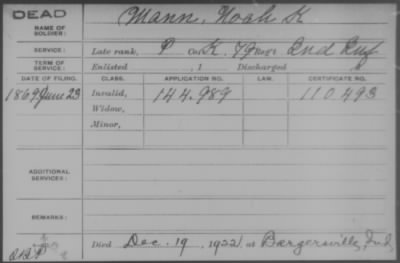 DEAD
NAME OF SOLDIER: Mann, Noah K
SERVICE: Late rank, P Co. K, 79 Reg't Ind Inf
TERM OF SERVICE: Enlisted , 1 Discharged
DATE OF FILING. CLASS. APPLICATION NO. LAW. CERTIFICATE NO.
1869 June 23 Invalid, 144.989 110.493
Widow,
Minor,
ADDITIONAL SERVICES:
REMARKS:
Died Dec. 19, 1922, at Bargersville, Ind.